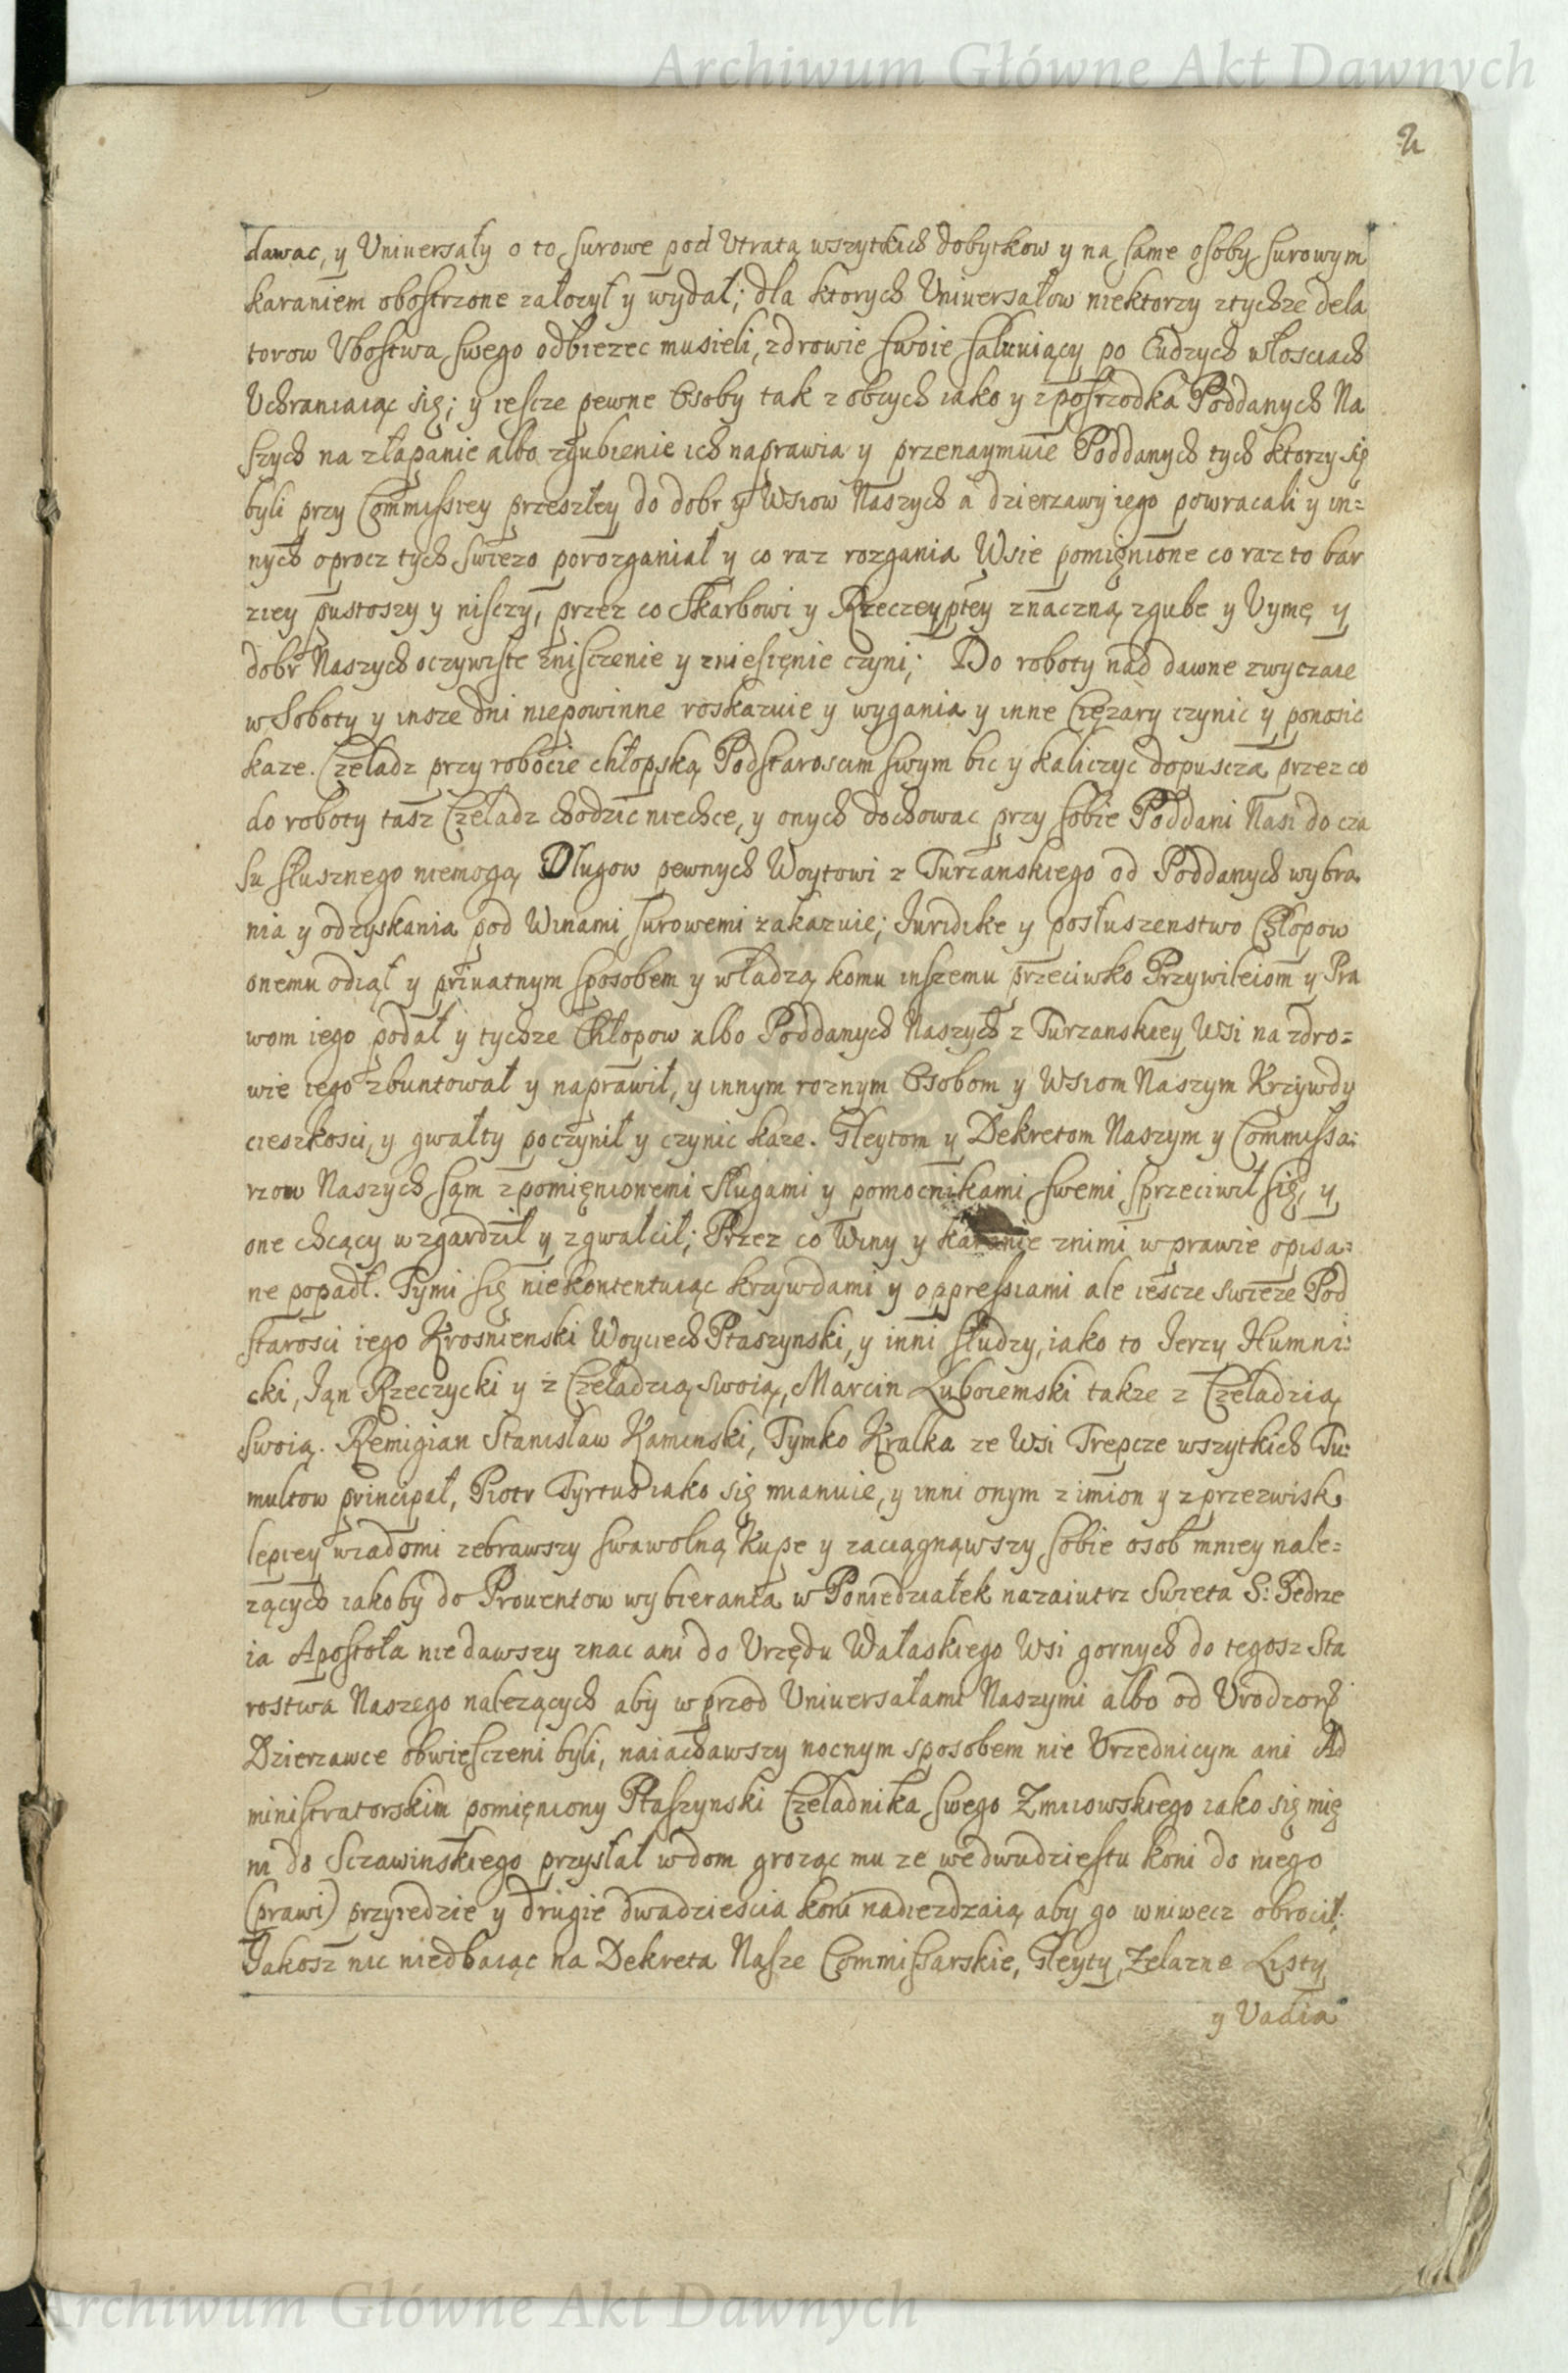 Archiwum Główne Akt Dawnych
2
dawac, y Uniuersały o to surowe pod Utratą wszytkich dobytkow y na same osoby surowym
karaniem obostrzone załozył y wydał; dla ktorych Uniuersałow niektorzy ztychze dela
torow Ubostwa swego odbiezec musieli, zdrowie swoie saluuiący po Cudzych włosciach
Uchraniaiąc się; y iescze pewne Osoby tak z obcych iako y zposrzodka Poddanych Na
szych na złapanie albo zgubienie ich naprawia y przenaymuie Poddanych tych ktorzy się
byli przy Commissiey przeszłey do dobr y Wsiow Naszych a dzierzawy iego powracali y in=
nych oprocz tych swiezo porozganiał y co raz rozgania Wsie pomięnione co raz to bar
ziey pustoszy y nisczy, przez co Skarbowi y Rzeczeyptey znaczną zgube y Uymę y
dobr Naszych oczywiste znisczenie y zniesięnie czyni; Do roboty nad dawne zwyczaie
w Soboty y insze dni niepowinne roskazuie y wygania y inne Ciężary czynic y ponosic
kaze. Czeladz przy robocie chłopską Podstaroscim swym bic y kaliczyc dopuscza przez co
do roboty tasz Czeladz chodzic niechce, y onych dochowac przy sobie Poddani Nasi do cza
su słusznego niemogą Długow pewnych Woytowi z Turzanskiego od Poddanych wybra
nia y odzyskania pod Winami surowemi zakazuie; Juridike y posłuszenstwo Chłopow
onemu odiął y priuatnym sposobem y władzą komu inszemu przeciwko Przywileiom y Pra
wom iego podał y tychze Chłopow albo Poddanych Naszych z Turzanskiey Wsi na zdro=
wie iego zbuntował y naprawił, y innym roznym Osobom y Wsiom Naszym Krzywdy
cieszkosci, y gwałty poczynił y czynic kaze. Gleytom y Dekretom Naszym y Commissa:
rzow Naszych sąm zpomięnionemi Sługami y pomocnikami swemi sprzeciwił się, y
one chcący wzgardził y zgwałcił; Przez co Winy y karanie znimi w prawie opisa=
ne popadł. Tymi się niekontentuiąc krzywdami y oppressiami ale iescze swieze Pod
starosci iego Krosnienski Woyciech Ptaszynski, y inni słudzy, iako to Jerzy Humni:
cki, Jąn Rzeczycki y z Czeladzią swoią, Marcin Luboiemski takze z Czeladzią
swoią. Remigian Stanisław Kaminski, Tymko Kralka ze Wsi Trepcze wszytkich Tu:
multow principał, Piotr Tyrtus iako się mianuie, y inni onym z imion y z przezwisk
lepiey wiadomi zebrawszy swawolną Kupe y zaciągnąwszy sobie osob mniey nale=
zących iakoby do Prouentow wybierania w Poniedziałek nazaiutrz Swieta S: Jędrze
ia Apostoła nie dawszy znac ani do Urzędu Wałaskiego Wsi gornych do tegosz Sta
rostwa Naszego nalezących aby wprzod Uniuersałami Naszymi albo od Urodzone°
Dzierzawce obwięsczeni byli, naiachawszy nocnym sposobem nie Urzednicym ani Ad
ministratorskim pomięniony Ptaszynski Czeladnika swego Zmiiowskiego iako się mię
ni do Sczawinskiego przysłał w dom grożąc mu ze wedwudziestu koni do niego
(prawi) przyiedzie y drugie dwadziescia koni nadiezdzaią aby go wniwecz obrocił.
Jakosz nic niedbaiąc na Dekreta Nasze Commissarskie, Gleyty, Zelazne Listy
y Vadia
Archiwum Główne Akt Dawnych